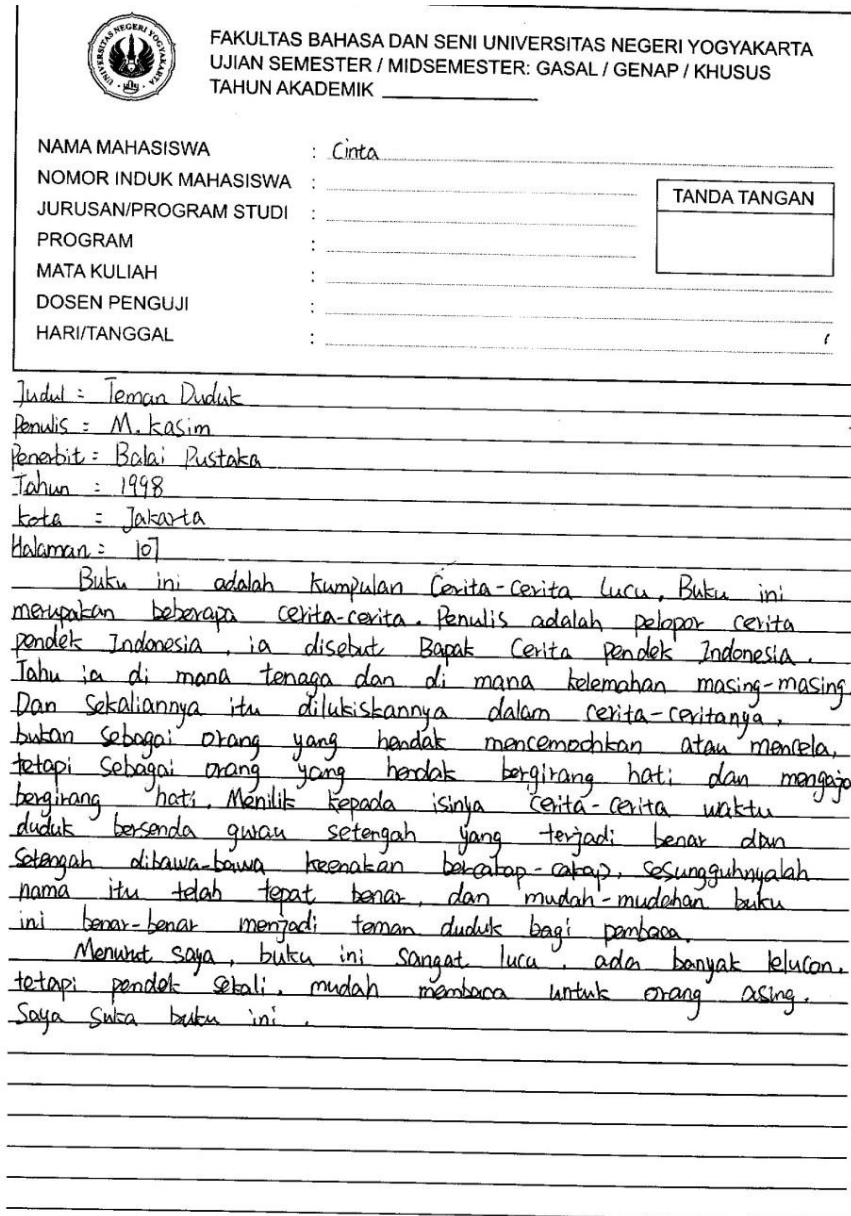 UNIVERSITAS NEGERI YOGYAKARTA
FAKULTAS BAHASA DAN SENI UNIVERSITAS NEGERI YOGYAKARTA
UJIAN SEMESTER / MIDSEMESTER: GASAL / GENAP / KHUSUS
TAHUN AKADEMIK
NAMA MAHASISWA : Cinta
NOMOR INDUK MAHASISWA :
TANDA TANGAN
JURUSAN/PROGRAM STUDI :
PROGRAM :
MATA KULIAH :
DOSEN PENGUJI :
HARI/TANGGAL :
Judul = Teman Duduk
Penulis = M. Kasim
Penerbit = Balai Pustaka
Tahun = 1998
Kota = Jakarta
Halaman = 107
Buku ini adalah kumpulan Cerita-cerita lucu, Buku ini
merupakan beberapa cerita-cerita. Penulis adalah pelopor cerita
pendek Indonesia, ia disebut Bapak Cerita pendek Indonesia.
Tahu ia di mana tenaga dan di mana kelemahan masing-masing.
Dan Sekaliannya itu dilukiskannya dalam cerita-ceritanya,
bukan sebagai orang yang hendak mencemoohkan atau mencela,
tetapi sebagai orang yang hendak bergirang hati dan mengaja
bergirang hati. Menilik kepada isinya cerita-cerita waktu
duduk bersenda gurau setengah yang terjadi benar dan
setengah dibawa-bawa keenakan bercakap-cakap, sesungguhnyalah
nama itu telah tepat benar, dan mudah-mudahan buku
ini benar-benar menjadi teman duduk bagi pembaca.
Menurut saya, buku ini sangat lucu, ada banyak lelucon,
tetapi pendek sekali, mudah membaca untuk orang asing.
Saya suka buku ini.